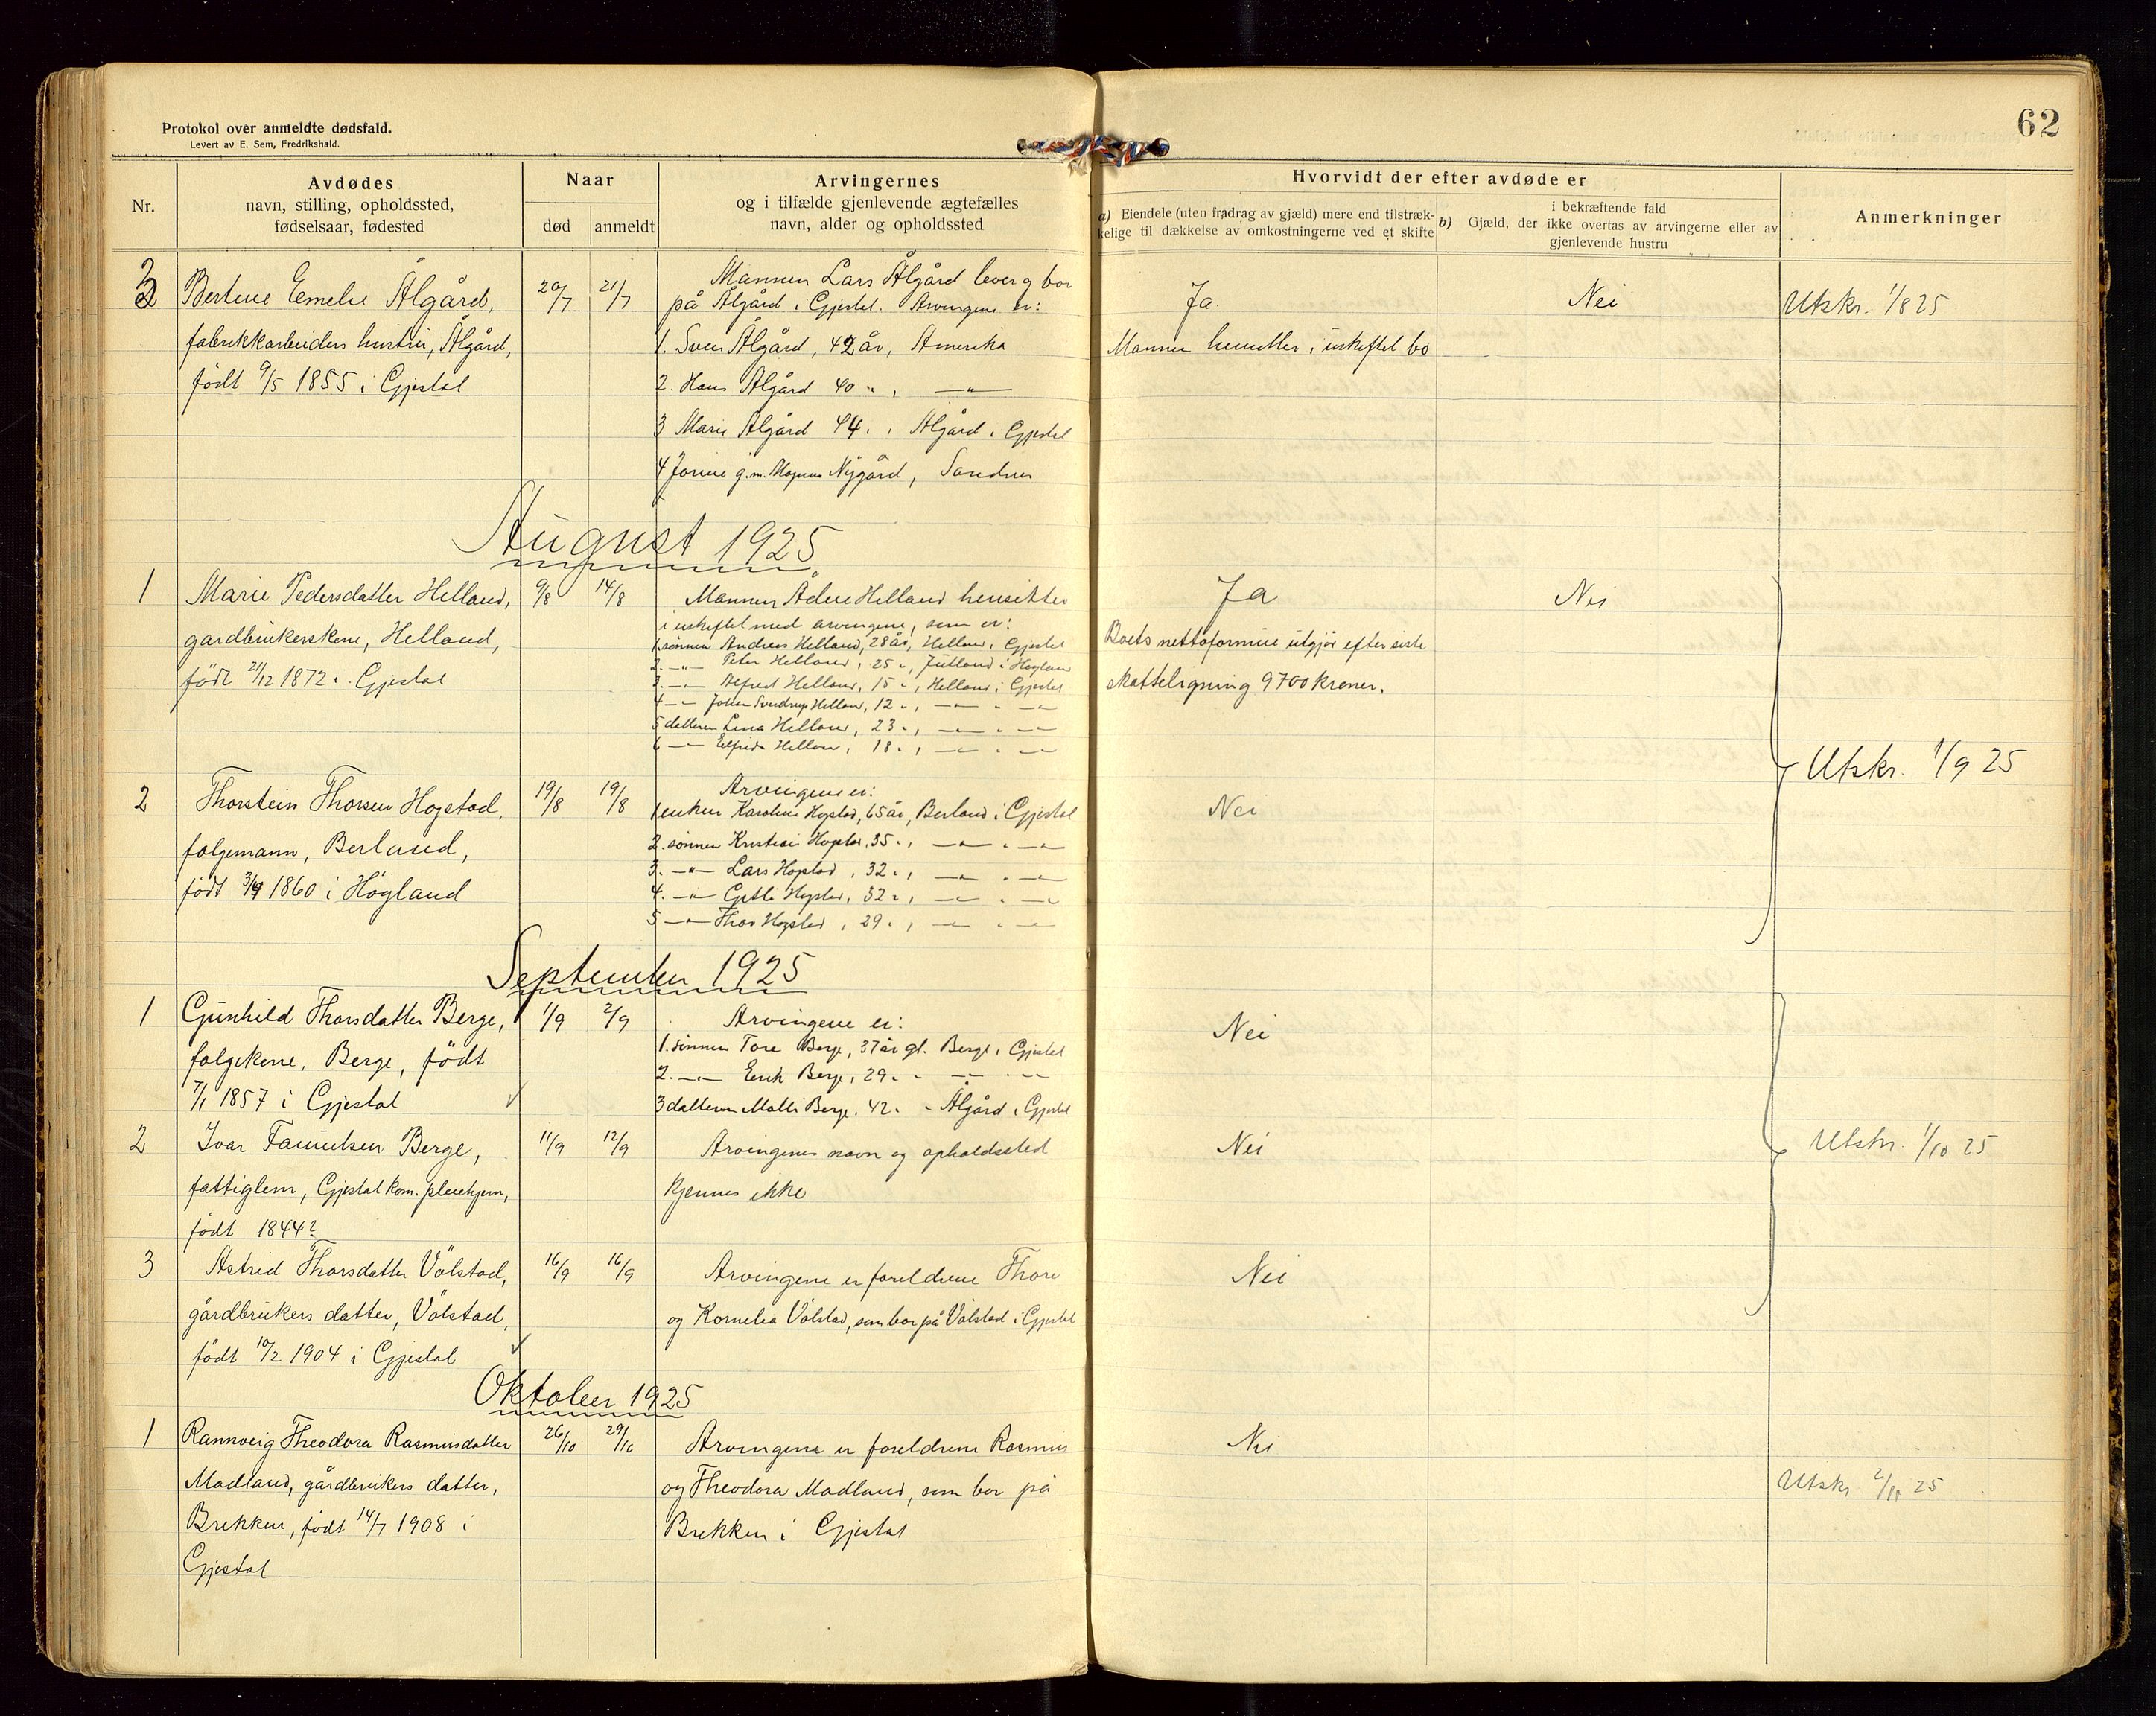 Protokol over anmeldte dødsfald.
Levert av E. Sem, Fredrikshald.
62
Nr.
Avdødes
navn, stilling, opholdssted,
fødselsaar, fødested
Naar
død
anmeldt
Arvingernes
og i tilfælde gjenlevende ægtefælles
navn, alder og opholdssted
Hvorvidt der efter avdøde er
a) Eiendele (uten fradrag av gjæld) mere end tilstræk-
kelige til dækkelse av omkostningerne ved et skifte
i bekræftende fald
b) Gjæld, der ikke overtas av arvingerne eller av
gjenlevende hustru
Anmerkninger
3
Bertine Emelie Ålgård,
fabrikkarbeiders hustru, Ålgård,
født 9/5 1855 i Gjestal
20/7
21/7
Mannen Lars Ålgård lever og bor
på Ålgård i Gjestal. Arvingene er:
1. Sven Ålgård, 42 år, Amerika
2. Hans Ålgård 40 " , —"—
3 Marie Ålgård 44 " , Ålgård i Gjestal
4 Jorine g.m. Magnus Nygård, Sandnes
Ja.
Mannen hensitter i uskiftet bo
Nei
Utskr. 1/8 25
August 1925
1
Marie Pedersdatter Helland,
gardbrukerskone, Helland,
født 21/12 1872 i Gjestal
9/8
14/8
Mannen Ådne Helland hensitter
i uskiftet med arvingene, som er:
1. sønnen Andreas Helland, 28 år, Helland i Gjestal
2. —"— Peter Helland, 25 ", Jutland i Høyland
3. —"— Alfred Helland, 15 ", Helland i Gjestal
4 —"— Johan Sverdrup Helland, 12 ", —"— " —"—
5 datteren Lina Helland, 23 ", —"— " —"—
6 —"— Elfrida Helland, 18 ", —"— " —"—
Ja
Boets nettoformue utgjør efter siste
skatteligning 9700 kroner.
Nei
Utskr. 1/9 25
2
Thorstein Thorsen Hogstad,
følgemann, Berland,
født 3/4 1860 i Högland
19/8
19/8
Arvingene er:
1 enken Karoline Hogstad, 65 år, Berland i Gjestal
2. sønnen Kristian Hogstad, 35 ", —"— " —"—
3. —"— Lars Hogstad, 32 ", —"— " —"—
4. —"— Gitle Hogstad, 32 ", —"— " —"—
5 —"— Thor Hogstad, 29 ", —"— " —"—
Nei
September 1925
1
Gunhild Thorsdatter Berge,
følgekone, Berge, født
7/1 1857 i Gjestal
1/9
2/9
Arvingene er:
1. sønnen Tore Berge, 37 år gl. Berge i Gjestal
2. —"— Eirik Berge, 29 " " —"— " —"—
3 datteren Malli Berge, 42 " " Ålgård i Gjestal
Nei
2
Ivar
Berge,
fattiglem, Gjestal kom. pleiehjem,
født 1844?
11/9
12/9
Arvingenes navn og opholdssted
kjennes ikke
Nei
Utskr. 1/10 25
3
Astrid Thorsdatter Völstad,
gårdbrukers datter, Völstad,
født 10/2 1904 i Gjestal
16/9
16/9
Arvingene er foreldrene Thore
og Kornelia Völstad, som bor på Völstad i Gjestal
Nei
Oktober 1925
1
Rannveig Theodora Rasmusdatter
Madland, gårdbrukers datter,
Brekken, født 14/7 1908 i
Gjestal
26/10
29/10
Arvingene er foreldrene Rasmus
og Theodora Madland, som bor på
Brekken i Gjestal
Nei
Utskr 2/11 25